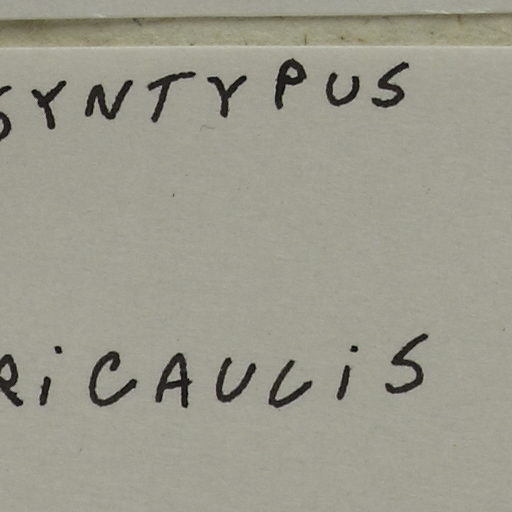 SYNTYPUS
RiCAULiS